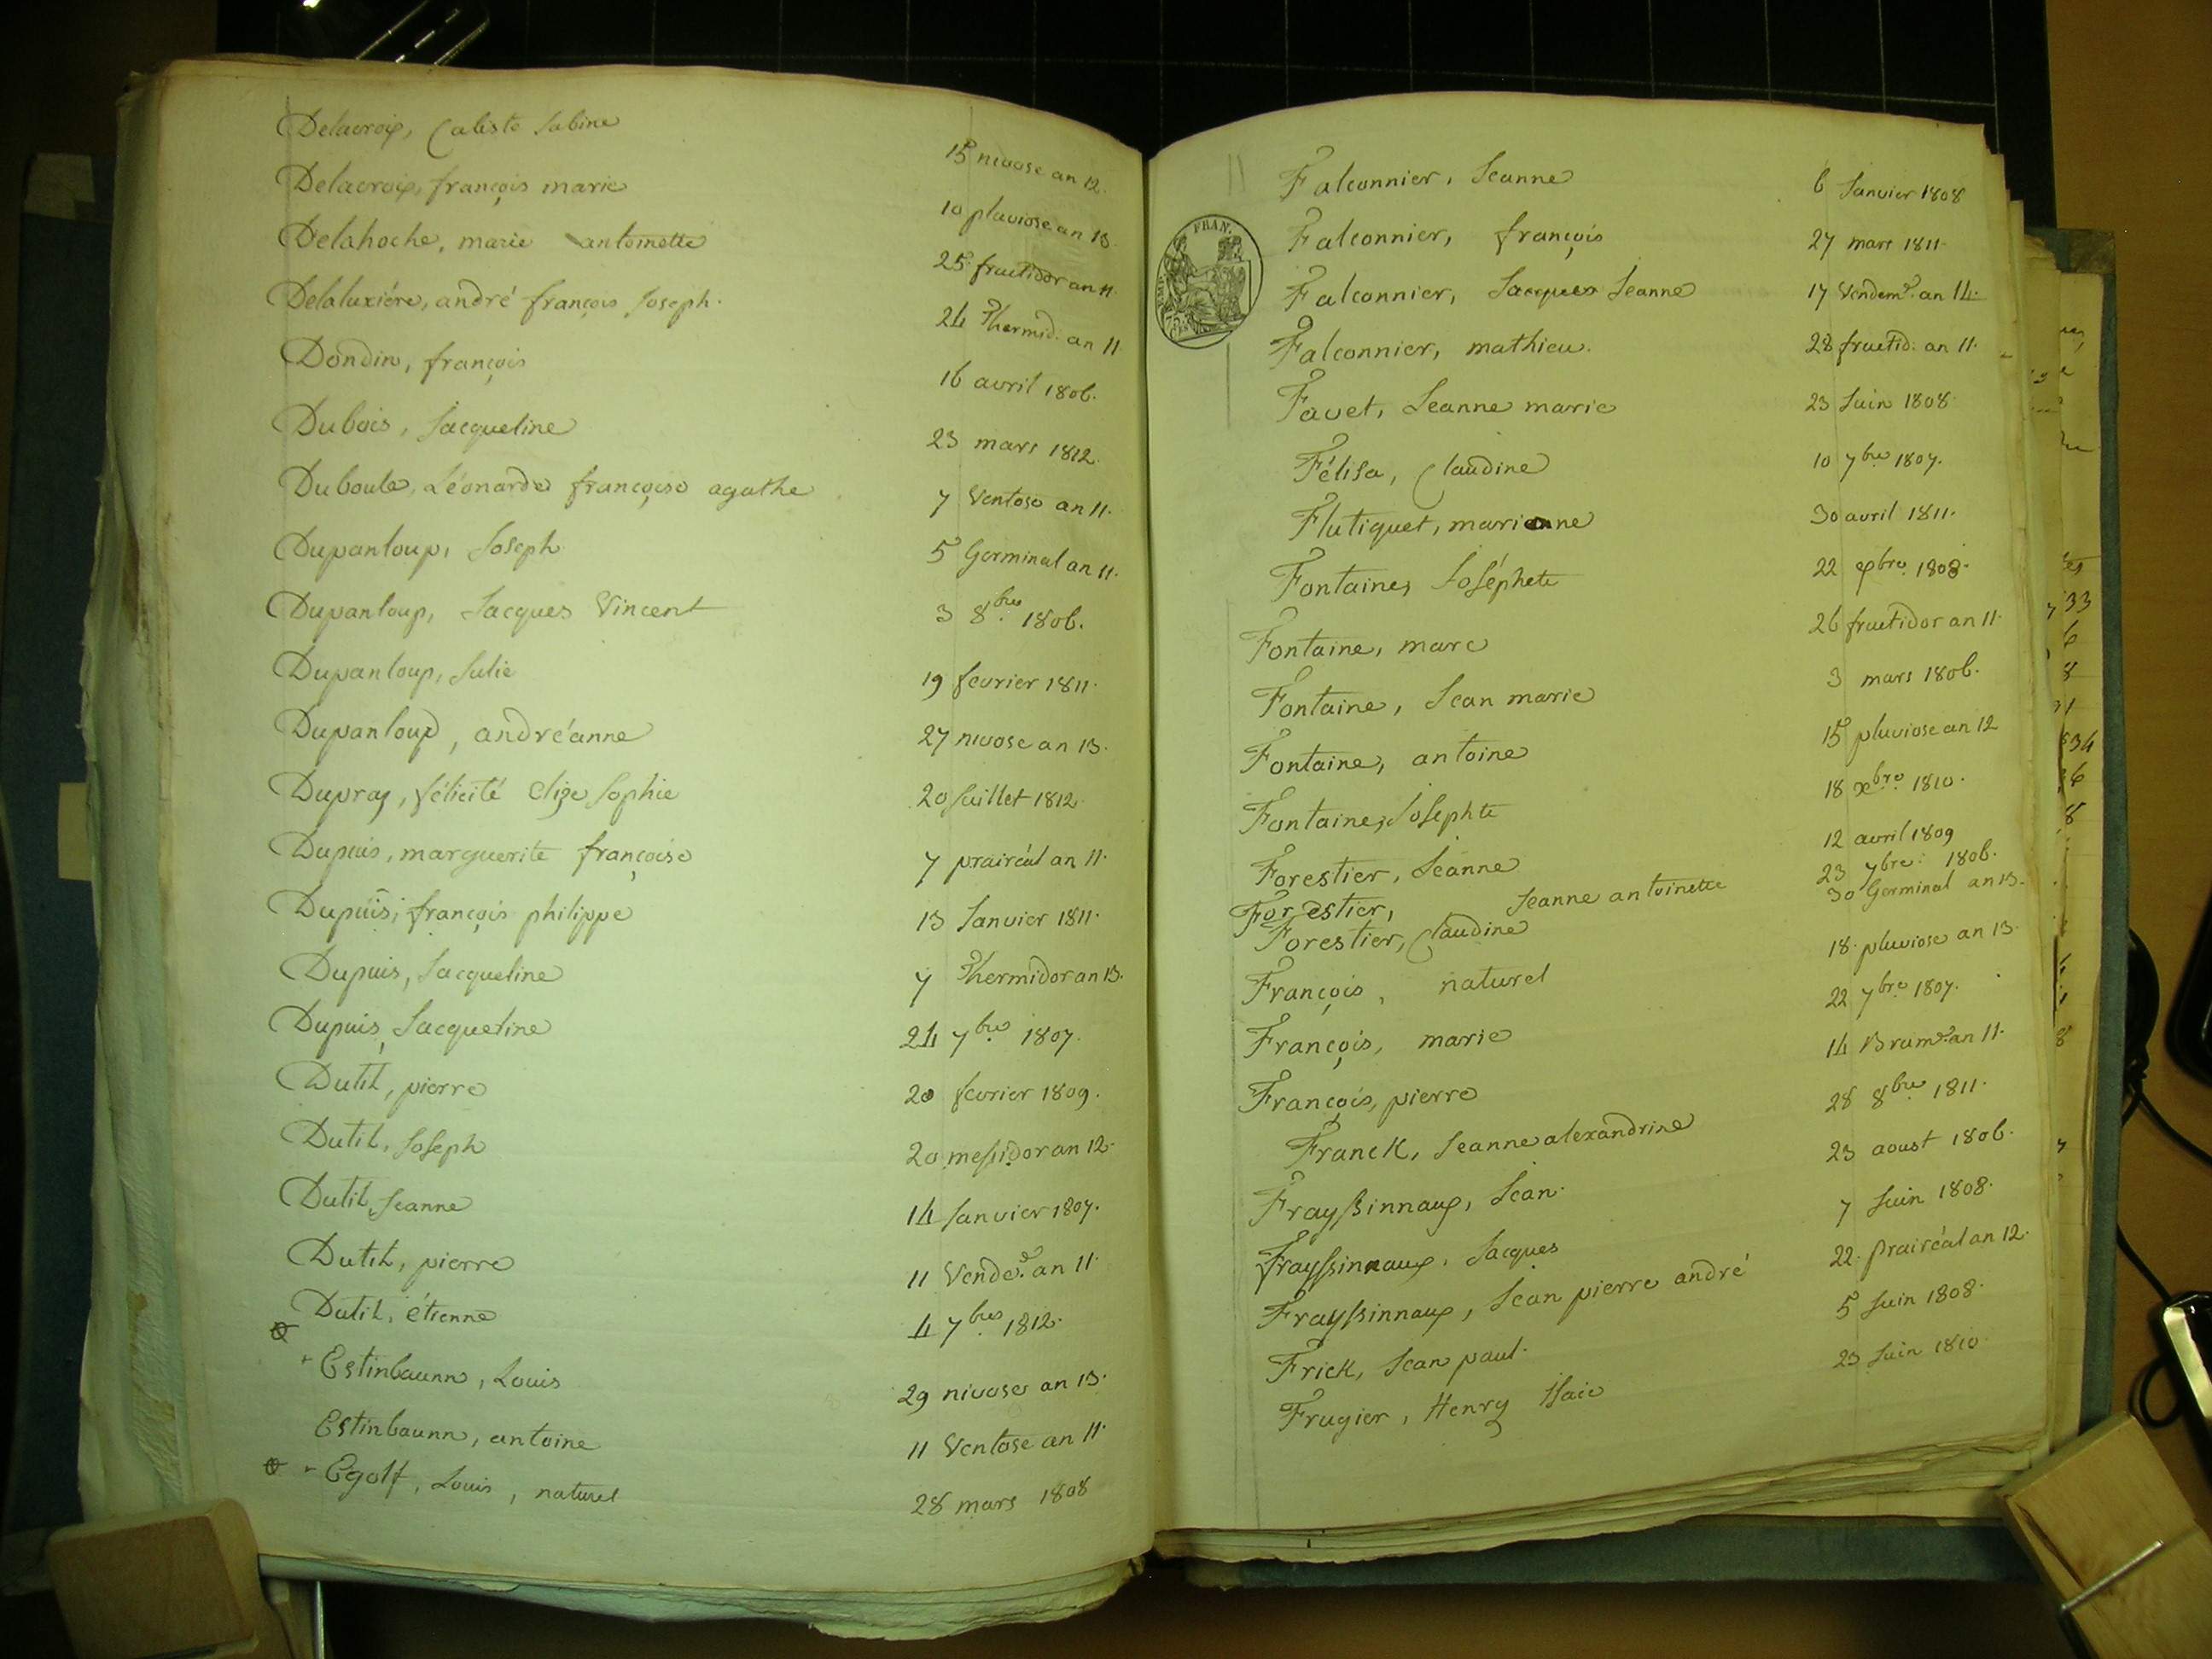 Delacroix, Caliste Sabine 15 nivose an 12.
Delacroix, françois marie 10 pluviose an 13
Delahoche, marie antoinette 25 fructidor an 11.
Delaluxiére, andré françois Joseph. 24 Thermid: an 11
Dondin, françois 16 avril 1806.
Dubois, Jacqueline 23 mars 1812.
Duboule, Léonarde françoise agathe 7 Ventose an 11.
Dupanloup, Joseph 5 Germinal an 11.
Dupanloup, Jacques Vincent 3 8.bre 1806.
Dupanloup, Julie 19 fevrier 1811.
Dupanloup, andréanne 27 nivose an 13.
Dupraz, félicité Elize Sophie 20 Juillet 1812.
Dupuis, marguerite françoise 7 prairéal an 11.
Dupuis, françois philippe 13 Janvier 1811.
Dupuis, Jacqueline 7 Thermidor an 13.
Dupuis, Jacqueline 24 7.bre 1807.
Dutil, pierre 20 fevrier 1809.
Dutil, Joseph 20 messidor an 12.
Dutil, Jeanne 14 Janvier 1807.
Dutil, pierre 11 Vende.re an 11.
Dutil, étienne 4 7.bre 1812.
Estinbaunn, Louis 29 nivose an 13.
Estinbaunn, antoine 11 Ventose an 11.
Egolf, Louis, naturel 28 mars 1808
FRAN.
Falconnier, Jeanne 6 Janvier 1808
Falconnier, françois 27 mars 1811.
Falconnier, Jacques Jeanne 17 Vendem.re an 14.
Falconnier, mathieu. 28 fructid: an 11.
Favet, Jeanne marie 23 Juin 1808
Félisa, Claudine 10 7bre 1807.
Flutiquet, marianne 30 avril 1811.
Fontaine, Joséphete 22 9bre. 1808.
Fontaine, marc 26 fructidor an 11.
Fontaine, Jean marie 3 mars 1806.
Fontaine, antoine 15 pluviose an 12
Fontaine, Josephte 18 xbre. 1810.
Forestier, Jeanne 12 avril 1809
Forestier, Jeanne antoinette 23 7bre: 1806.
Forestier, Claudine 30 Germinal an 13.
François, naturel 18. pluviose an 13.
François, marie 22 7bre. 1807.
François, pierre 14 Brum.re an 11.
Franck, Jeanne alexandrine 28 8bre 1811.
Frayssinnaux, Jean. 23 aoust 1806.
frayssinnaux, Jacques 7 Juin 1808.
Frayssinnaux, Jean pierre andré 22. prairéal an 12.
Frick, Jean paul. 5 Juin 1808.
Frugier, Henry Isaic 23 Juin 1810